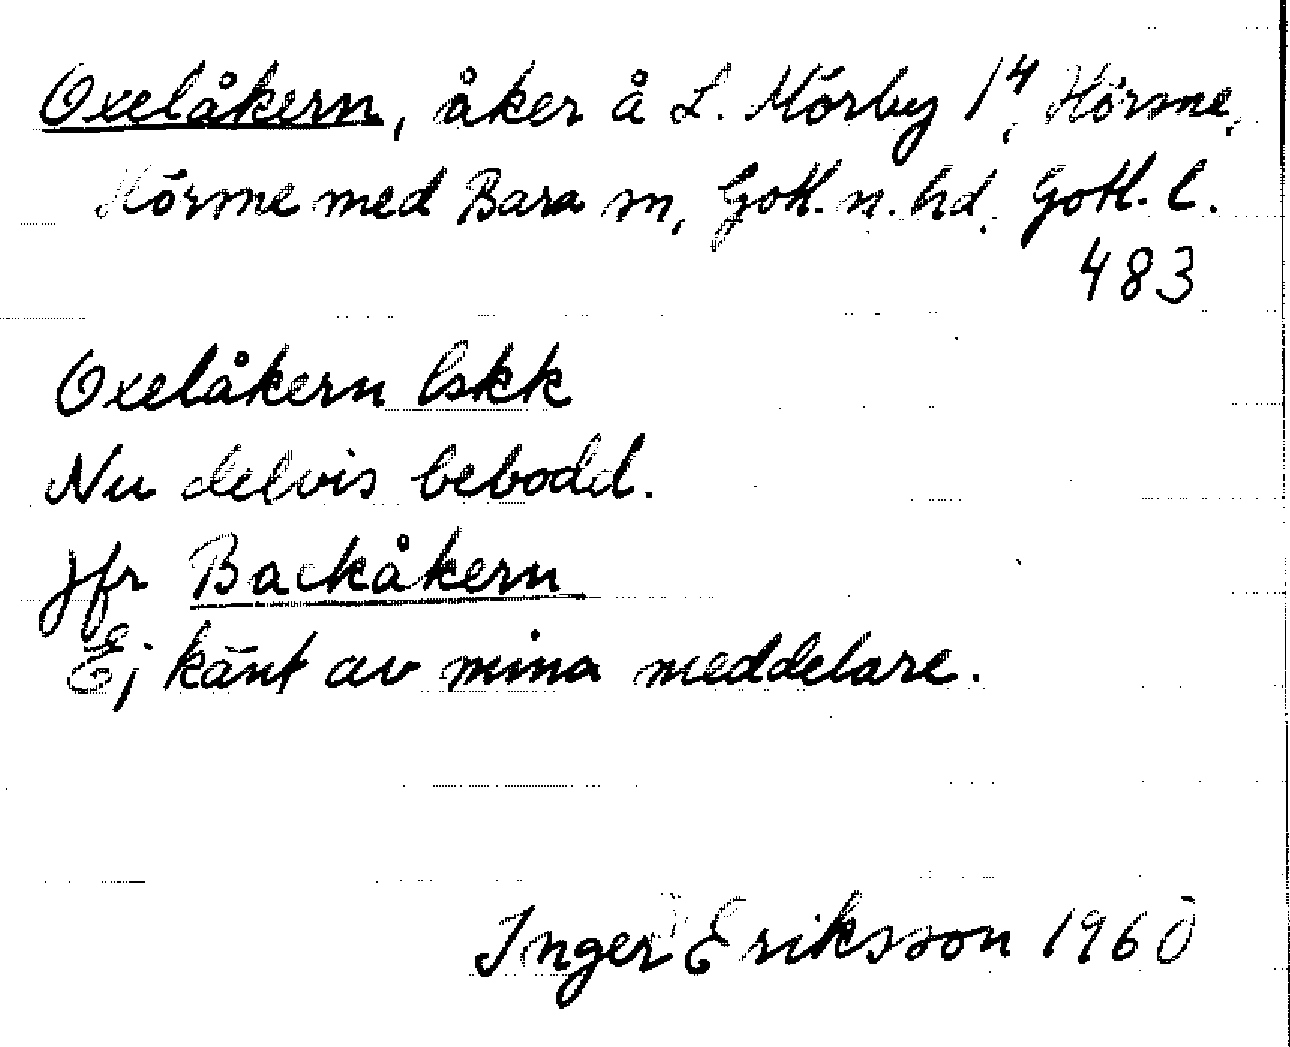 Oxelåkern, åker å L. Mörby 1⁴, Hörsne,
Hörsne med Bara sn, Gotl. n. hd. Gotl. l.
483
Oxelåkern lskk
Nu delvis bebodd.
Jfr Backåkern
Ej känt av mina meddelare.
Inger Eriksson 1960